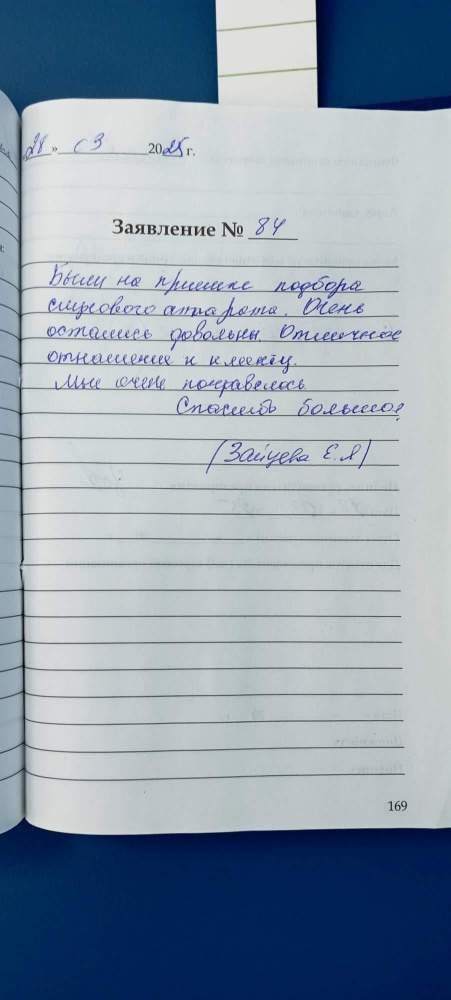 28 » 03 2025 г.
Заявление № 84
Были на приеме подбора
слухового аппарата. Очень
остались довольны. Отличное
отнашение к клиенту.
Мне очень понравелось
Спасибо большое!
(Зайцева Е.А)
169